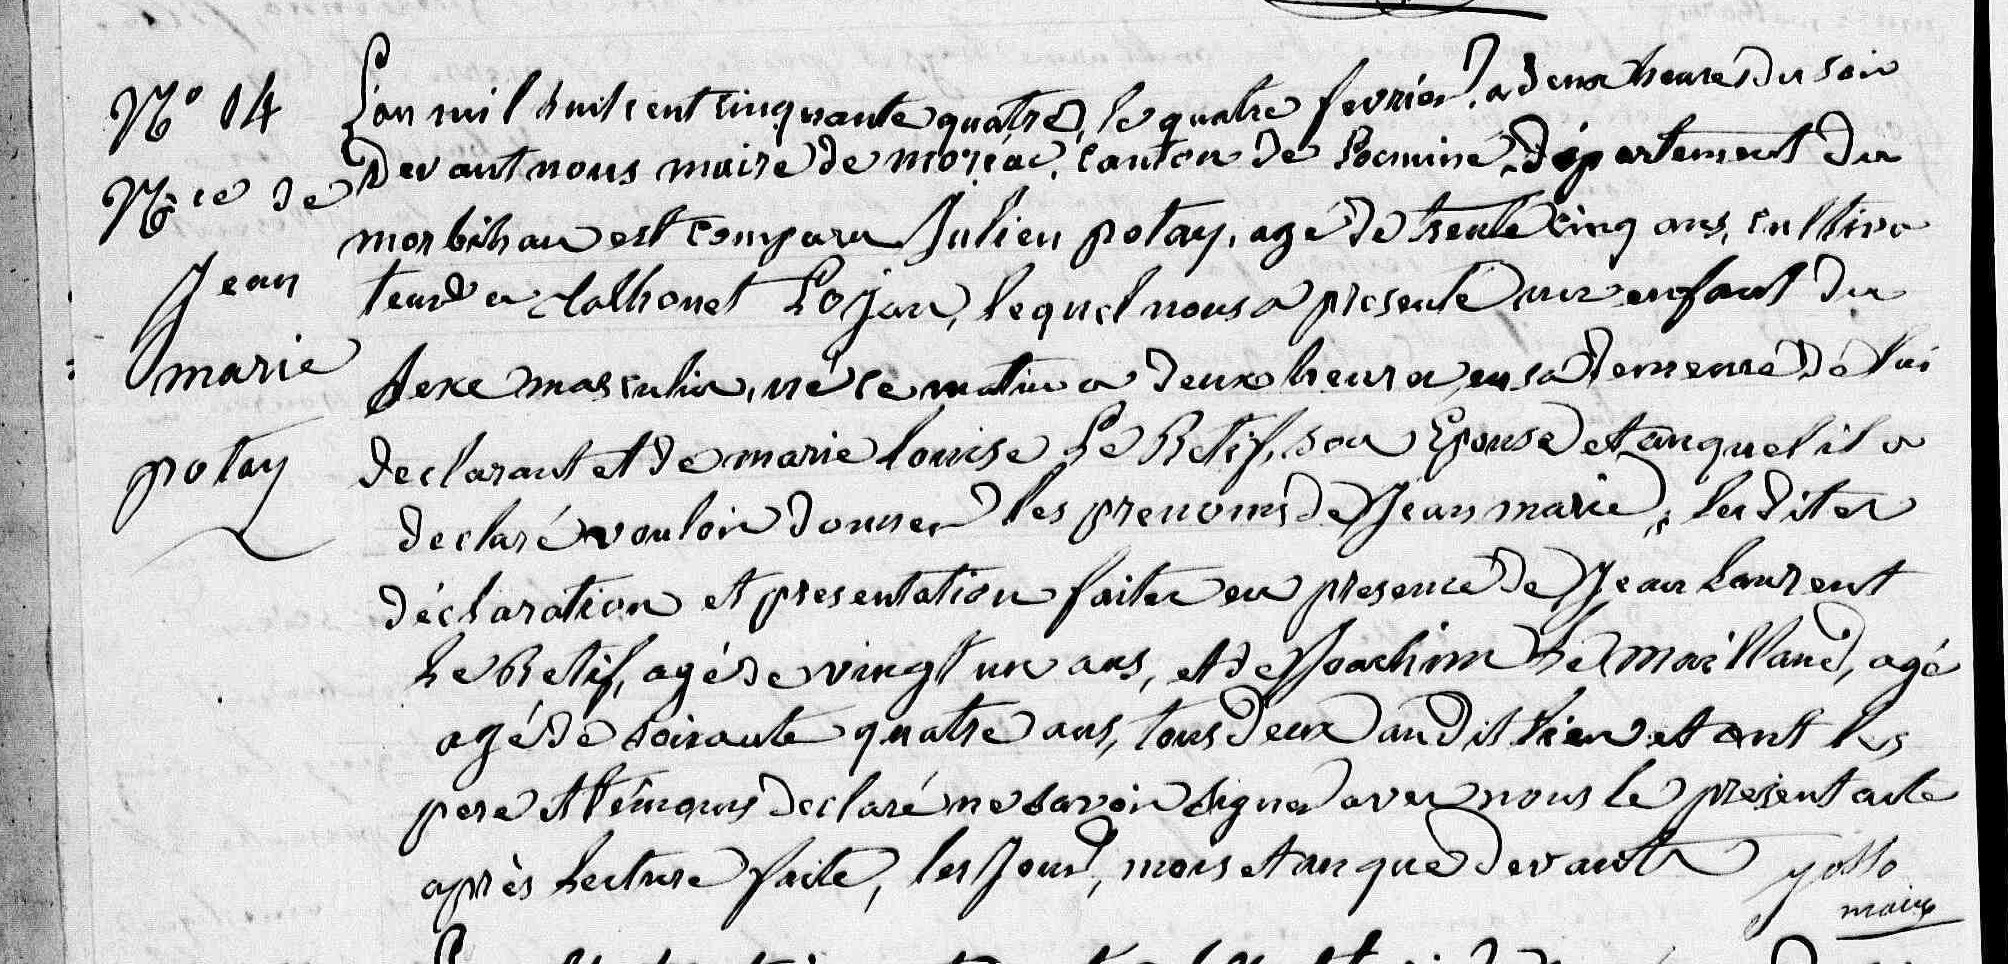 N° 14
N.ce de
Jean
marie
potay
L'an mil huit cent cinquante quatre, le quatre fevrier, a deux heures du soir
Devant nous maire de moréac, canton de Locminé, Département du
morbihan est comparu Julien potay, agé de trente cinq ans, cultiva
teur a talhouet Lojan, lequel nous a presenté un enfant du
sexe masculin, né ce matin a deux heures en sa demeure de lui
declarant et de marie Louise Le Retif, son Epouse et auquel il a
declaré vouloir donner les prenoms de Jean marie, les dites
déclaration et presentation faites en presence de Jean Laurent
Le Retif, agé de vingt un ans, et de Joachim Le maillaud, agé
agé de soixante quatre ans, tous deux audit lieu et ont les
pere et témoins declaré ne savoir signer avec nous le present acte
après lecture faite, les Jour, mois et an que devant
yosso
maire